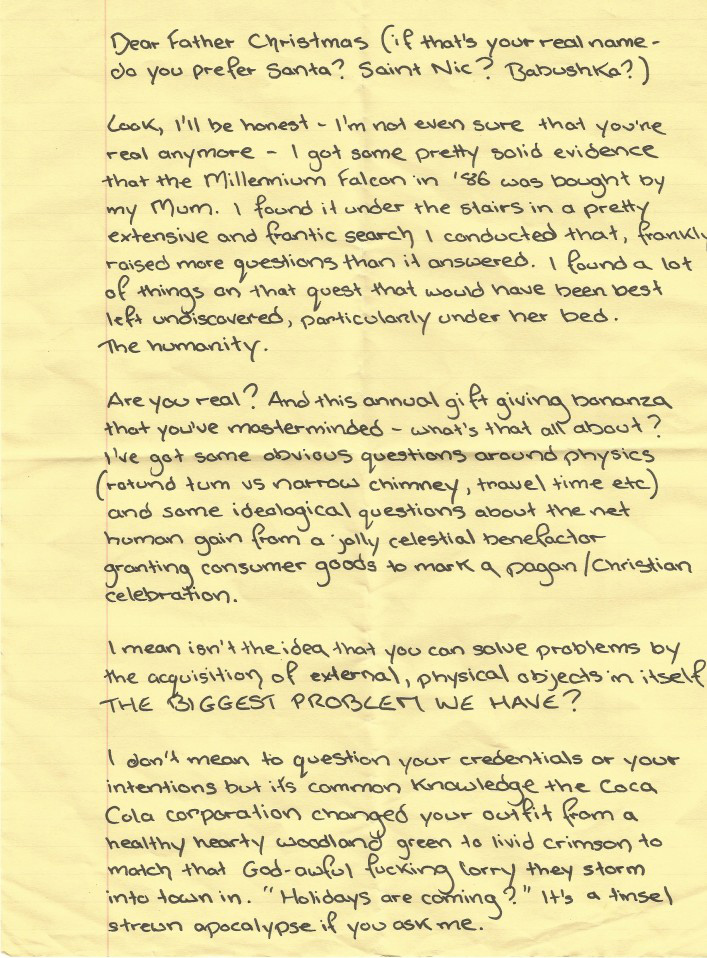 Dear Father Christmas (if that's your real name -
do you prefer Santa? Saint Nic? Babushka?)
Look, I'll be honest - I'm not even sure that you're
real anymore - I got some pretty solid evidence
that the Millennium Falcon in '86 was bought by
my Mum. I found it under the stairs in a pretty
extensive and frantic search I conducted that, frankly
raised more questions than it answered. I found a lot
of things on that quest that would have been best
left undiscovered, particularly under her bed.
The humanity.
Are you real? And this annual gift giving bonanza
that you've masterminded - what's that all about?
I've got some obvious questions around physics
(rotund tum vs narrow chimney, travel time etc)
and some ideological questions about the net
human gain from a jolly celestial benefactor
granting consumer goods to mark a pagan/Christian
celebration.
I mean isn't the idea that you can solve problems by
the acquisition of external, physical objects in itself
THE BIGGEST PROBLEM WE HAVE?
I don't mean to question your credentials or your
intentions but it's common knowledge the Coca
Cola corporation changed your outfit from a
healthy hearty woodland green to livid crimson to
match that God-awful fucking lorry they storm
into town in. "Holidays are coming?" It's a tinsel
strewn apocalypse if you ask me.